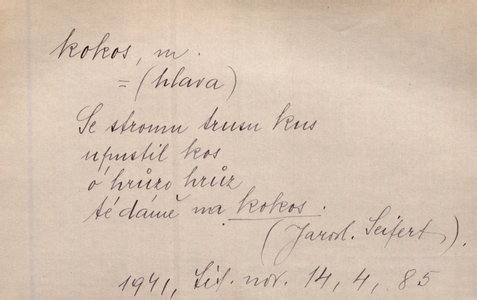 kokos, m.
= (hlava)
Se stromu trusu kus
upustil kos
ó hrůzo hrůz
té dámě na kokos.
(Jarosl. Seifert).
1941, Lit. nov. 14, 4, 85